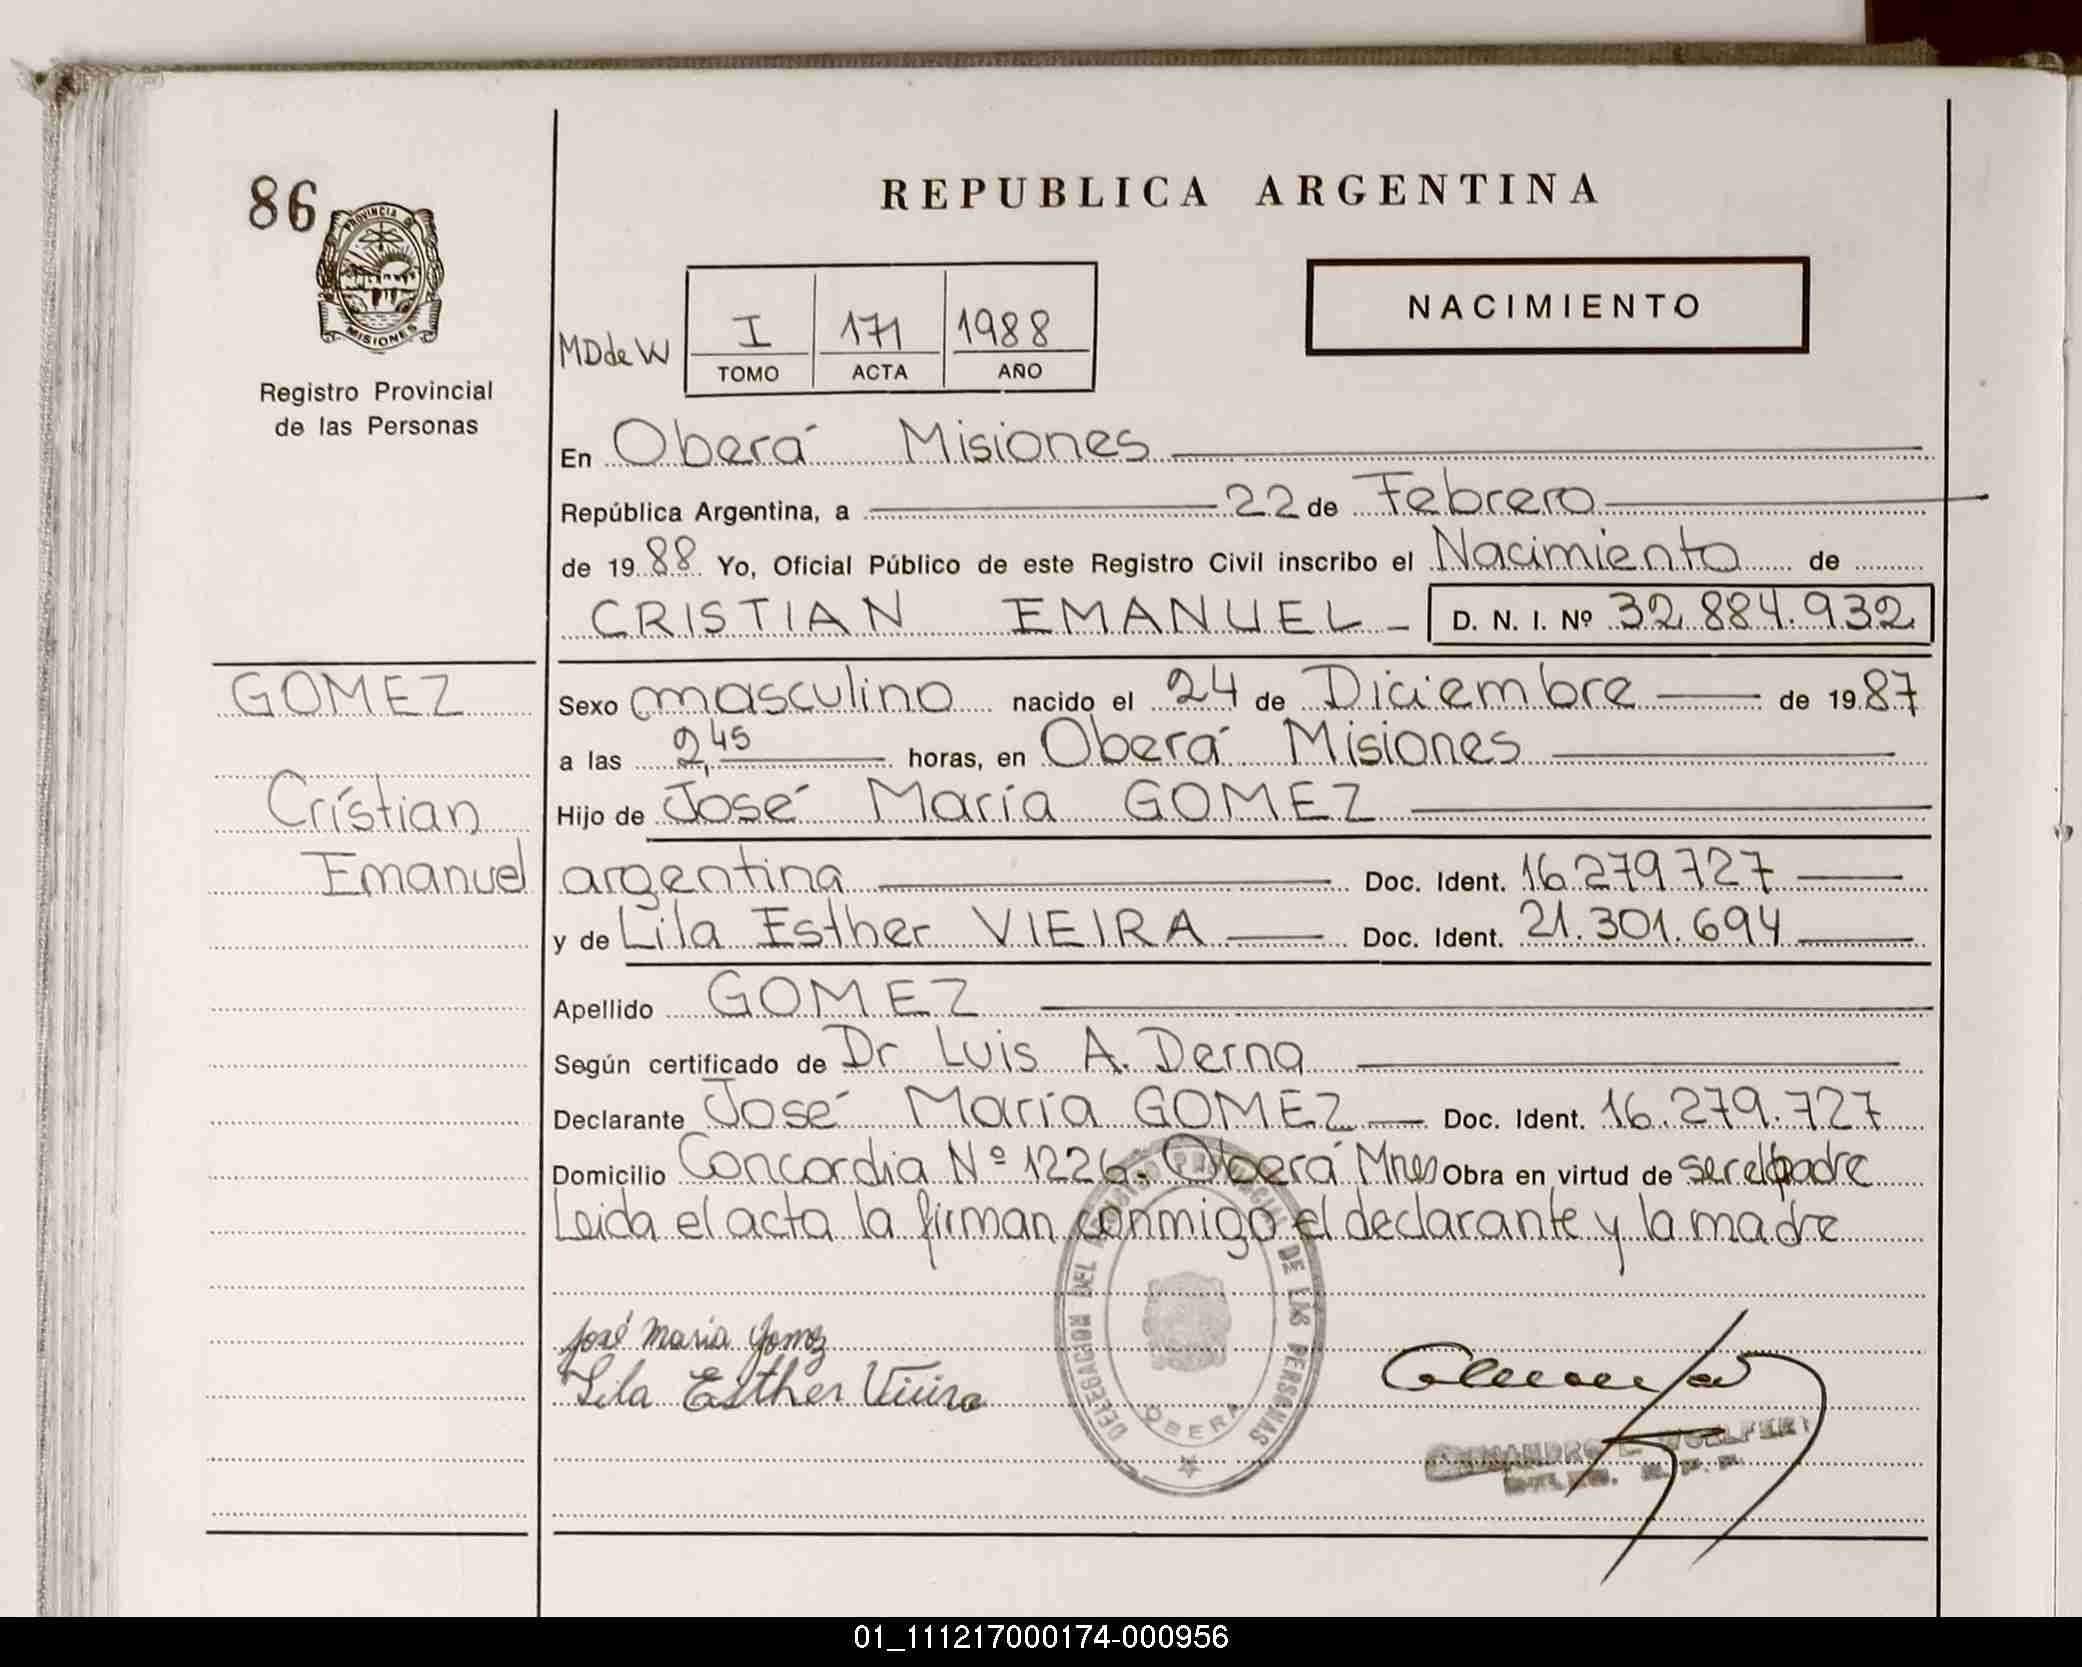 86
PROVINCIA DE
MISIONES
Registro Provincial
de las Personas
REPUBLICA ARGENTINA
MDdeW
I 171 1988
TOMO ACTA AÑO
NACIMIENTO
En Oberá Misiones
República Argentina, a 22 de Febrero
de 1988 Yo, Oficial Público de este Registro Civil inscribo el Nacimiento de
CRISTIAN EMANUEL - D. N. I. Nº 32.884.932
GOMEZ
Cristian
Emanuel
Sexo masculino nacido el 24 de Diciembre de 1987
a las 2,45 horas, en Oberá Misiones
Hijo de José María GOMEZ
argentina Doc. Ident. 16.279.727
y de Lila Esther VIEIRA Doc. Ident. 21.301.694
Apellido GOMEZ
Según certificado de Dr Luis A. Derna
Declarante José María GOMEZ Doc. Ident. 16.279.727
Domicilio Concordia Nº 1226. Oberá Mnes Obra en virtud de ser el padre
Leida el acta la firman conmigo el declarante y la madre
José María Gomez
Lila Esther Vieira
DELEGACION DEL REGISTRO PROVINCIAL DE LAS PERSONAS
OBERA
01_111217000174-000956